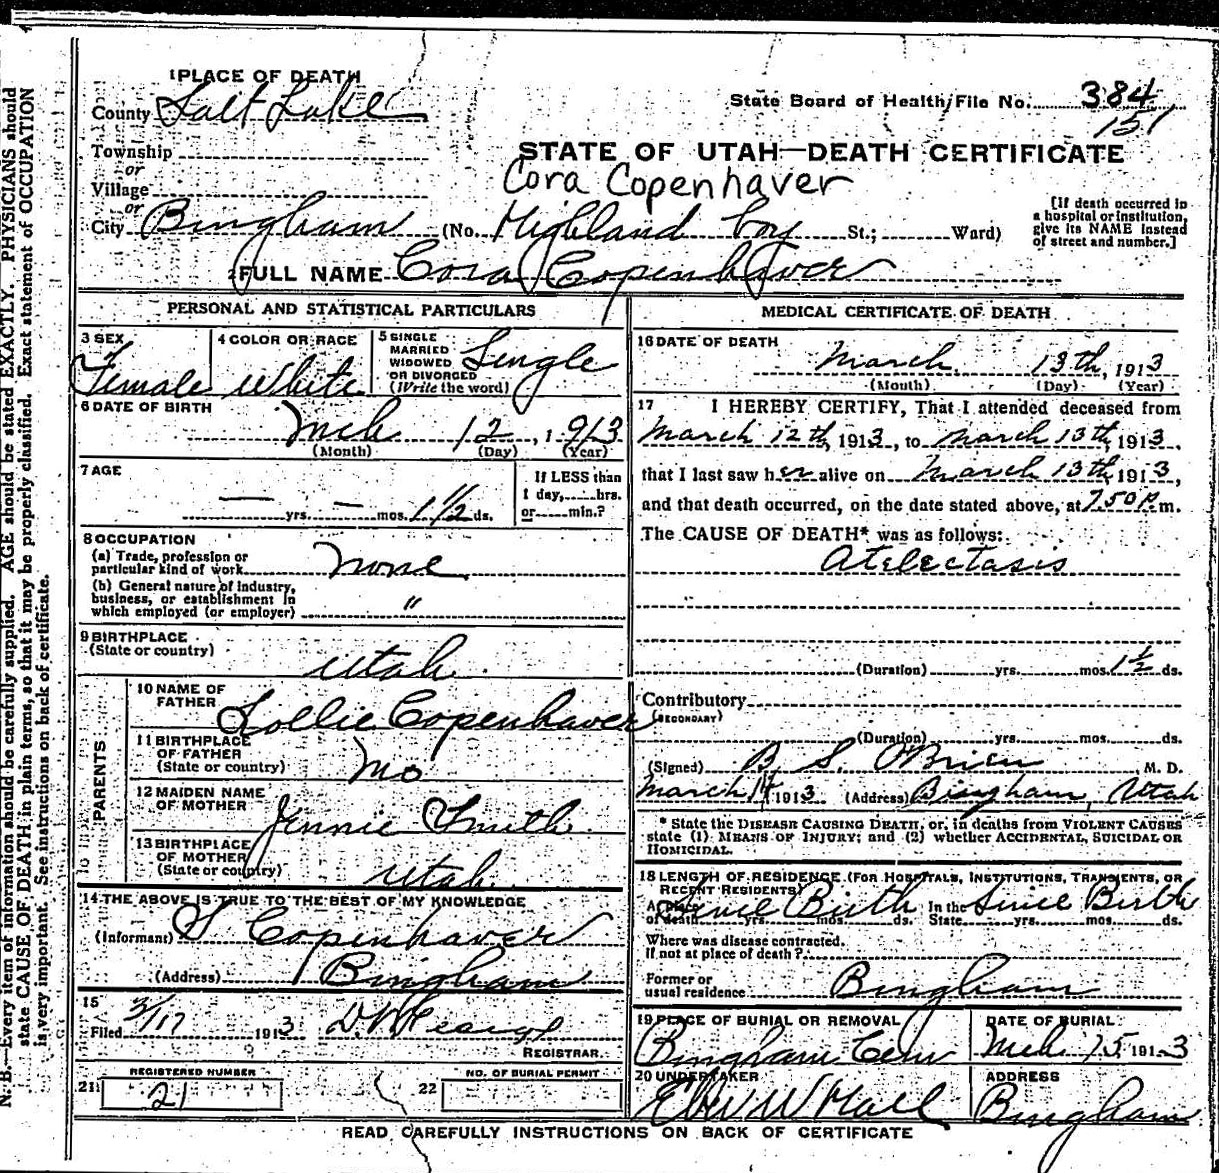 1 PLACE OF DEATH
County Salt Lake
State Board of Health File No. 384
151
Township
or
Village
or
STATE OF UTAH—DEATH CERTIFICATE
Cora Copenhaver
City Bingham (No. Highland Boy St.; Ward)
[If death occurred in
a hospital or institution,
give its NAME instead
of street and number.]
2 FULL NAME Cora Copenhaver
PERSONAL AND STATISTICAL PARTICULARS
3 SEX
Female
4 COLOR OR RACE
White
5 SINGLE
MARRIED
WIDOWED
OR DIVORCED
(Write the word)
Single
6 DATE OF BIRTH
Mch 12, 1913
(Month) (Day) (Year)
7 AGE
— yrs. — mos. 1 1/2 ds.
If LESS than
1 day, hrs.
or min.?
8 OCCUPATION
(a) Trade, profession or
particular kind of work None
(b) General nature of industry,
business, or establishment in
which employed (or employer) "
9 BIRTHPLACE
(State or country)
Utah
PARENTS
10 NAME OF
FATHER
Lollie Copenhaver
11 BIRTHPLACE
OF FATHER
(State or country)
Mo
12 MAIDEN NAME
OF MOTHER
Jennie Smith
13 BIRTHPLACE
OF MOTHER
(State or country)
Utah
14 THE ABOVE IS TRUE TO THE BEST OF MY KNOWLEDGE
(Informant) S Copenhaver
(Address) Bingham
15
Filed 3/17 1913
REGISTRAR.
REGISTERED NUMBER
21 21
NO. OF BURIAL PERMIT
22
MEDICAL CERTIFICATE OF DEATH
16 DATE OF DEATH
March 13th, 1913
(Month) (Day) (Year)
17 I HEREBY CERTIFY, That I attended deceased from
March 12th, 1913, to March 13th 1913,
that I last saw her alive on March 13th 1913,
and that death occurred, on the date stated above, at 7.50 p. m.
The CAUSE OF DEATH* was as follows:
Atelectasis
(Duration) yrs. mos. 1 1/2 ds.
Contributory
(SECONDARY)
(Duration) yrs. mos. ds.
(Signed) B S. O'Brien M. D.
March 14 1913 (Address) Bingham, Utah
* State the DISEASE CAUSING DEATH, or, in deaths from VIOLENT CAUSES
state (1) MEANS OF INJURY; and (2) whether ACCIDENTAL, SUICIDAL OR
HOMICIDAL.
18 LENGTH OF RESIDENCE (FOR HOSPITALS, INSTITUTIONS, TRANSIENTS, OR
RECENT RESIDENTS)
At place Since Birth In the Since Birth
of death yrs. mos. ds. State yrs. mos. ds.
Where was disease contracted,
if not at place of death?
Former or
usual residence Bingham
19 PLACE OF BURIAL OR REMOVAL
Bingham Cem
DATE OF BURIAL
Mch 15 1913
20 UNDERTAKER
W Hall
ADDRESS
Bingham
READ CAREFULLY INSTRUCTIONS ON BACK OF CERTIFICATE
N. B.—Every item of information should be carefully supplied. AGE should be stated EXACTLY. PHYSICIANS should
state CAUSE OF DEATH in plain terms, so that it may be properly classified. Exact statement of OCCUPATION
is very important. See instructions on back of certificate.